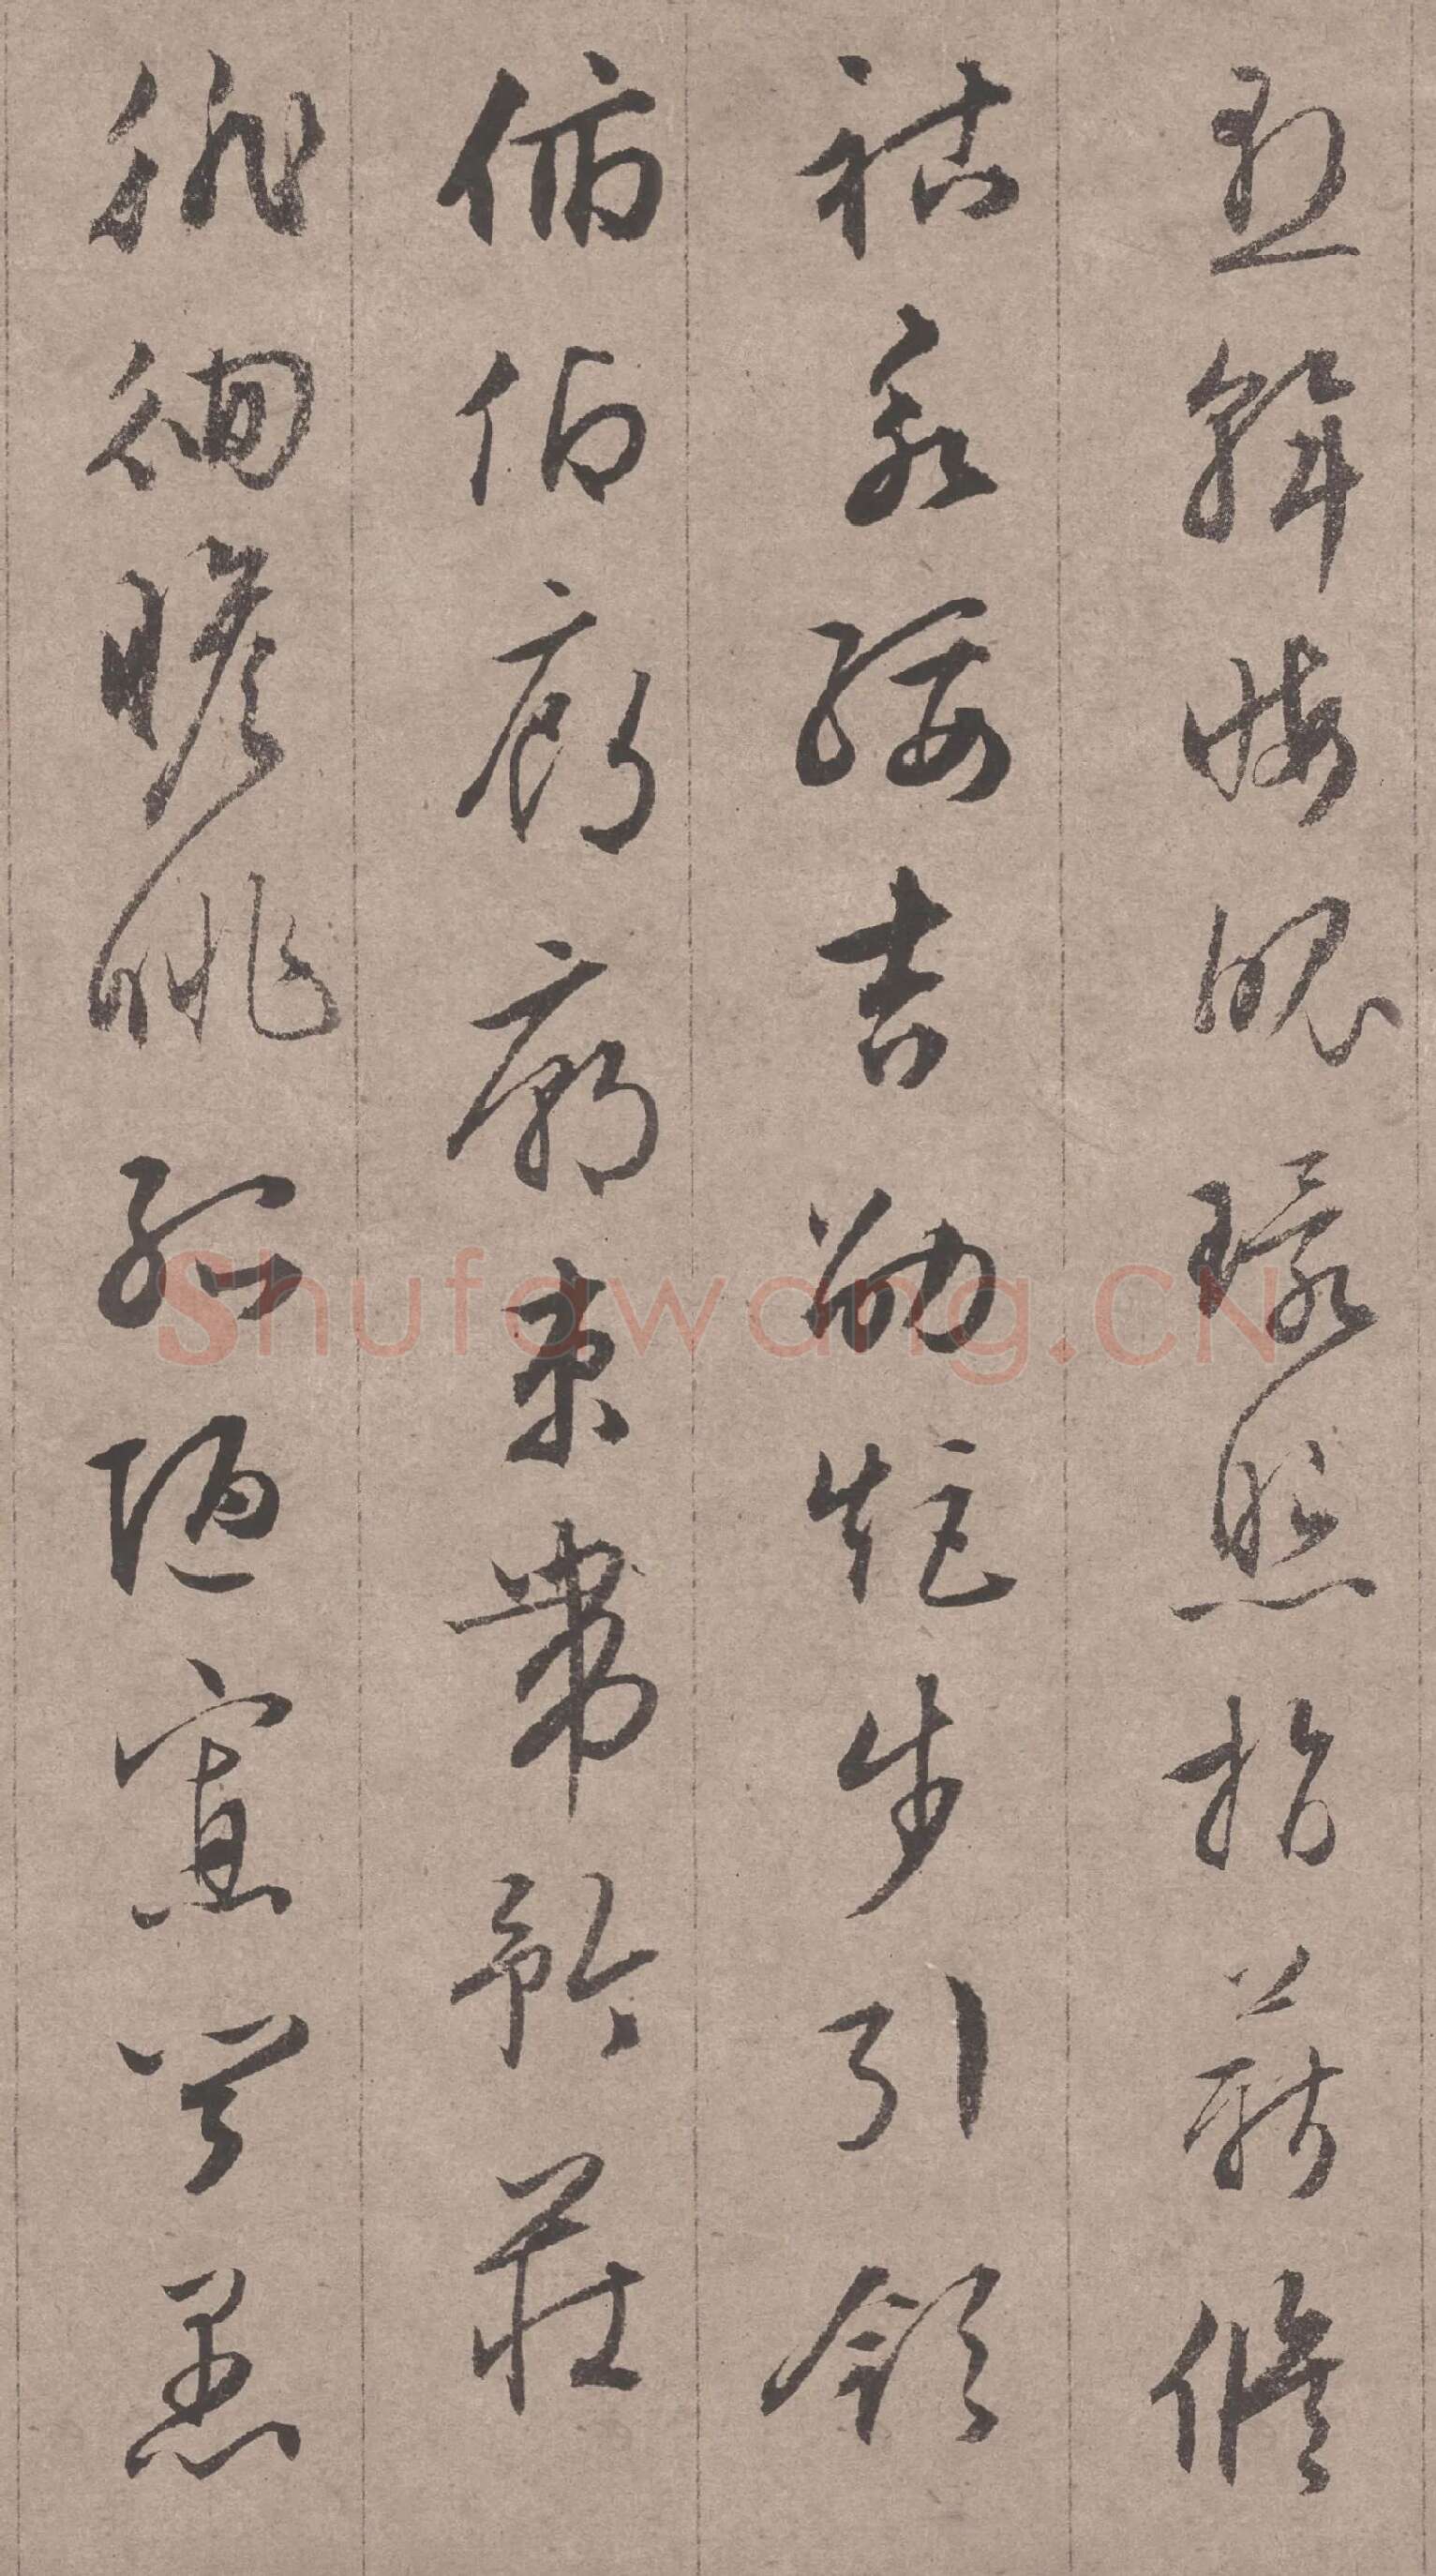 懸斡晦魄環照指薪修
祜永綏吉劭矩步引領
俯仰廊廟束帶矜莊
徘徊瞻眺孤陋寡聞愚
Shufawang.CN